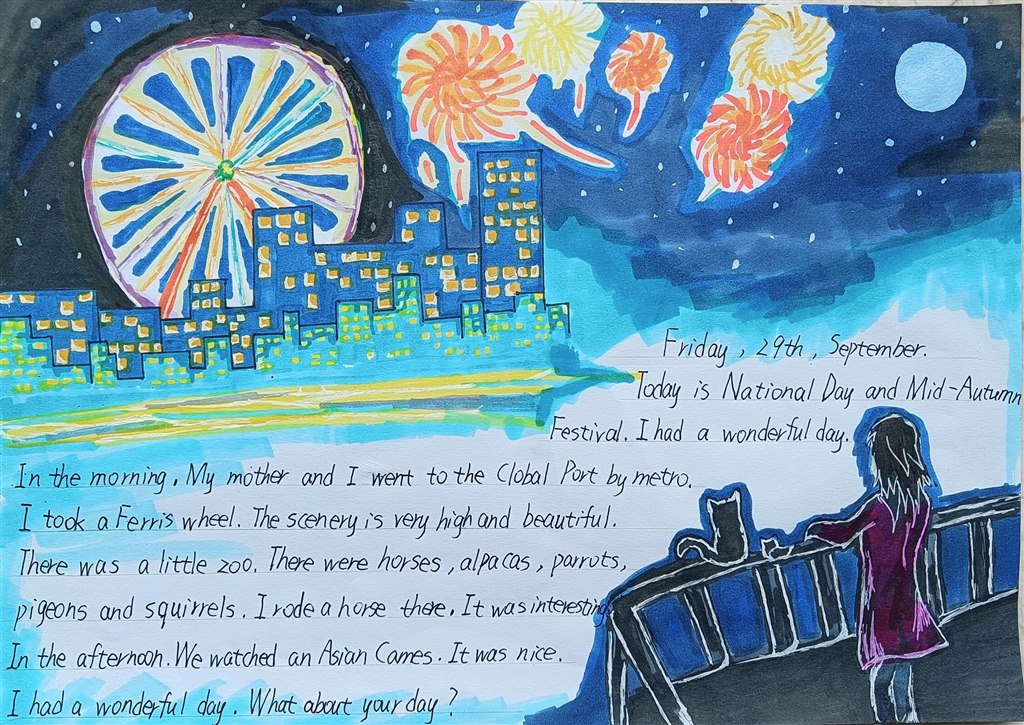 Friday, 29th, September.
Today is National Day and Mid-Autumn
Festival. I had a wonderful day.
In the morning. My mother and I went to the Clobal Port by metro.
I took a Ferris wheel. The scenery is very high and beautiful.
There was a little zoo. There were horses, alpacas, parrots,
pigeons and squirrels. I rode a horse there. It was interesting
In the afternoon. We watched an Asian Cames. It was nice.
I had a wonderful day. What about your day?